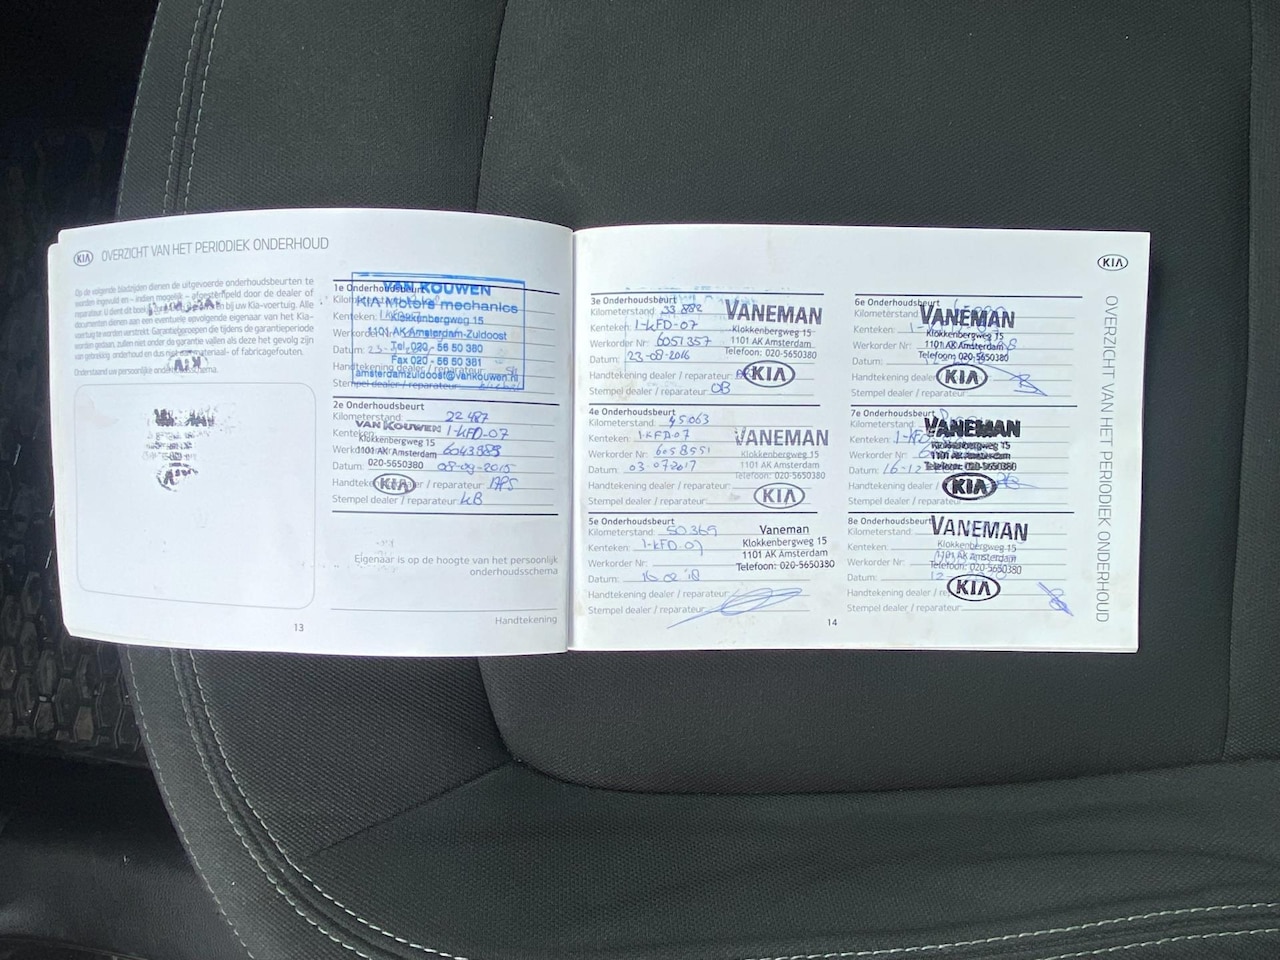 KIA OVERZICHT VAN HET PERIODIEK ONDERHOUD
Op de volgende bladzijden dienen de uitgevoerde onderhoudsbeurten te
worden ingevuld en – indien mogelijk – afgestempeld door de dealer of
reparateur. U dient dit boek bij uw Kia-voertuig. Alle
documenten dienen aan een eventuele opvolgende eigenaar van het Kia-
voertuig te worden verstrekt. Garantieberoepen die tijdens de garantieperiode
worden gedaan, zullen niet onder de garantie vallen als deze het gevolg zijn
van gebrekkig onderhoud en dus niet materiaal- of fabricagefouten.
Onderstaand uw persoonlijke onderhoudsschema.
1e Onderhoudsbeurt
VAN KOUWEN
KIA Motors mechanics
Klokkenbergweg 15
1101 AK Amsterdam-Zuidoost
Tel. 020 - 56 50 380
Fax 020 - 56 50 381
amsterdamzuidoost@vankouwen.nl
Kenteken:
Datum: 23-
Handtekening dealer
Stempel dealer / reparateur
2e Onderhoudsbeurt
Kilometerstand: 22 487
Kenteken: 1-KFD-07
Werkorder Nr: 6043885
Datum: 08-09-2015
Handtekening dealer / reparateur: APS
Stempel dealer / reparateur: KB
VAN KOUWEN
Klokkenbergweg 15
1101 AK Amsterdam
020-5650380
KIA
Eigenaar is op de hoogte van het persoonlijk
onderhoudsschema
Handtekening
13
KIA
3e Onderhoudsbeurt
Kilometerstand: 33.882
Kenteken: 1-KFD-07
Werkorder Nr: 6051357
Datum: 23-08-2016
Handtekening dealer / reparateur:
Stempel dealer / reparateur: OB
VANEMAN
Klokkenbergweg 15
1101 AK Amsterdam
Telefoon: 020-5650380
KIA
4e Onderhoudsbeurt
Kilometerstand: 45.063
Kenteken: 1-KFD-07
Werkorder Nr: 6058551
Datum: 03-07-2017
Handtekening dealer / reparateur:
Stempel dealer / reparateur:
VANEMAN
Klokkenbergweg 15
1101 AK Amsterdam
Telefoon: 020-5650380
KIA
5e Onderhoudsbeurt
Kilometerstand: 50369
Kenteken: 1-KFD-07
Werkorder Nr:
Datum: 18
Handtekening dealer / reparateur:
Stempel dealer / reparateur:
Vaneman
Klokkenbergweg 15
1101 AK Amsterdam
Telefoon: 020-5650380
6e Onderhoudsbeurt
Kilometerstand:
Kenteken: 1-
Werkorder Nr:
Datum:
Handtekening dealer
Stempel dealer / reparateur:
VANEMAN
Klokkenbergweg 15
1101 AK Amsterdam
Telefoon: 020-5650380
KIA
7e Onderhoudsbeurt
Kilometerstand:
Kenteken: 1-KFD
Werkorder Nr:
Datum: 16-12
Handtekening dealer
Stempel dealer / reparateur:
VANEMAN
Klokkenbergweg 15
1101 AK Amsterdam
Telefoon: 020-5650380
KIA
8e Onderhoudsbeurt
Kilometerstand:
Kenteken:
Werkorder Nr:
Datum: 12-
Handtekening dealer / re
Stempel dealer / reparateur:
VANEMAN
Klokkenbergweg 15
1101 AK Amsterdam
Telefoon: 020-5650380
KIA
14
OVERZICHT VAN HET PERIODIEK ONDERHOUD